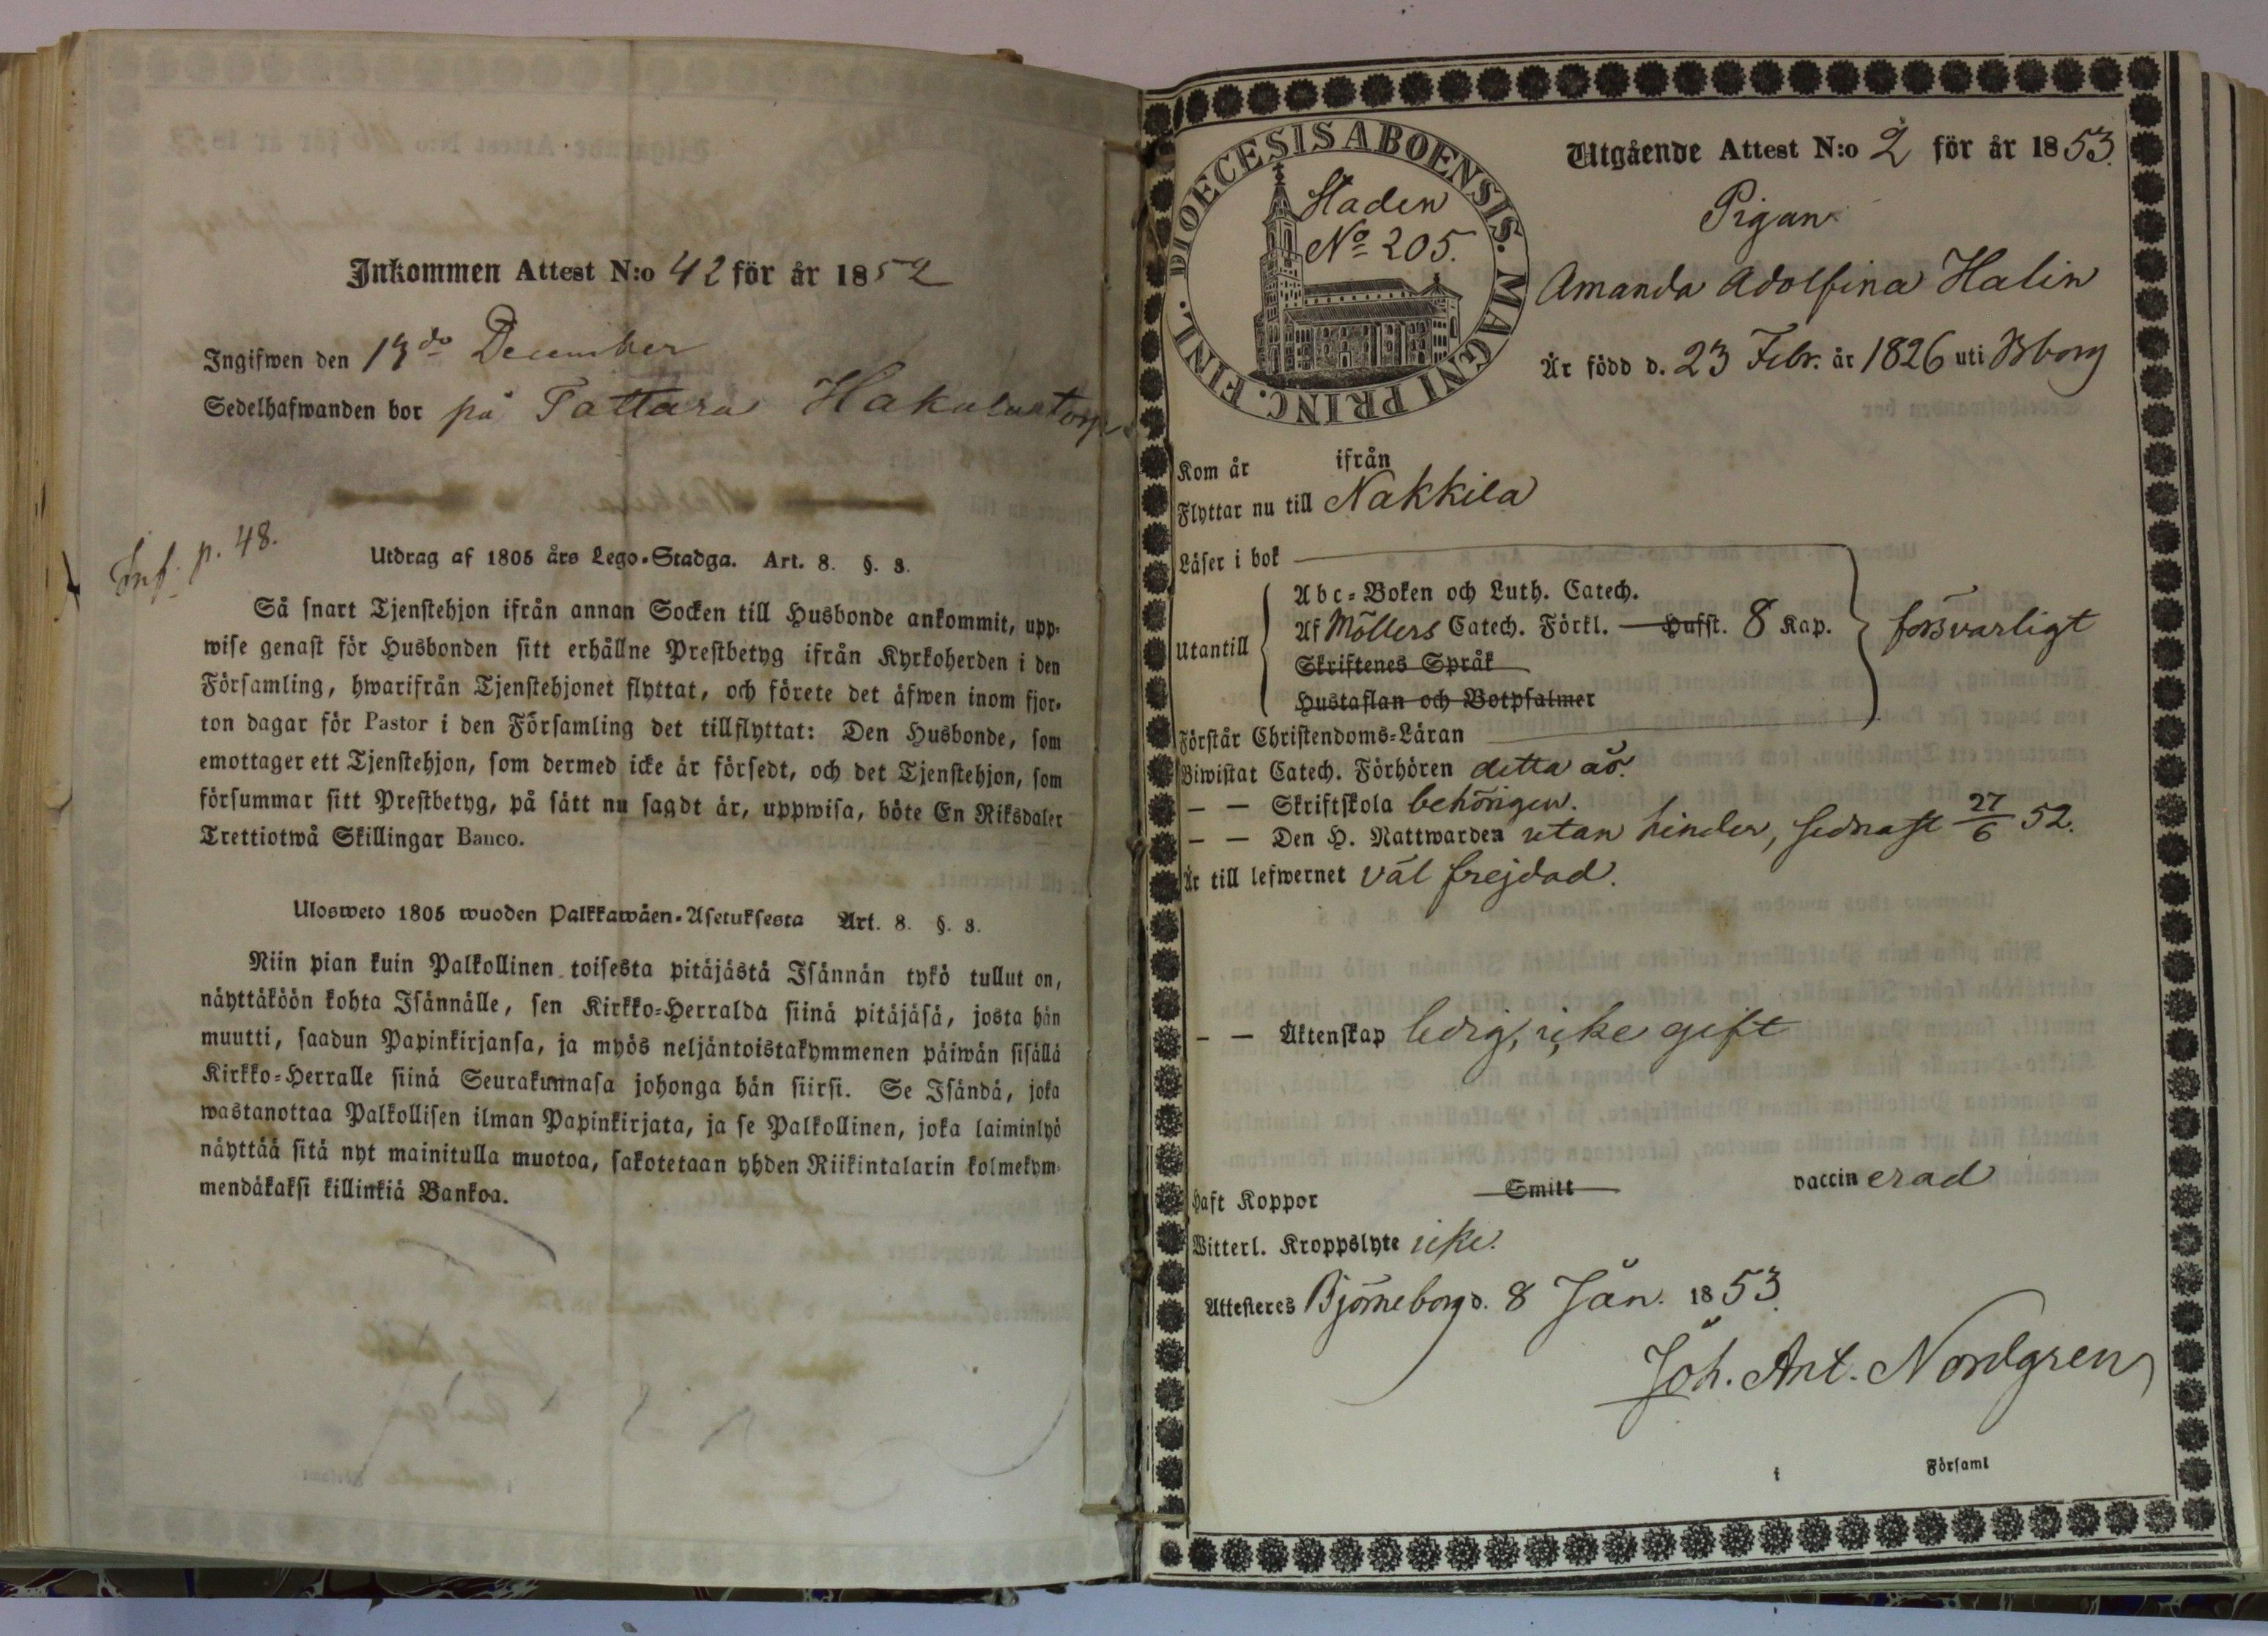 Inkommen Attest N:o 42 för år 1852
Ingifwen den 13do December
Sedelhafwanden bor på Tattara Hakalantorp
Inf. p. 48.
Utdrag af 1805 års Lego-Stadga. Art. 8. §. 8.
Så snart Tjenstehjon ifrån annan Socken till Husbonde ankommit, upp-
wise genast för Husbonden sitt erhållne Prestbetyg ifrån Kyrkoherden i den
Församling, hwarifrån Tjenstehjonet flyttat, och förete det äfwen inom fjor-
ton dagar för Pastor i den Församling det tillflyttat: Den Husbonde, som
emottager ett Tjenstehjon, som dermed icke är försedt, och det Tjenstehjon, som
försummar sitt Prestbetyg, på sätt nu sagdt är, uppwisa, böte En Riksdaler
Trettiotwå Skillingar Banco.
Ulosweto 1805 wuoden Palkkawäen-Asetuksesta Art. 8. §. 8.
Niin pian kuin Palkollinen toisesta pitäjästä Isännän tykö tullut on,
näyttäköön kohta Isännälle, sen Kirkko-Herralda siinä pitäjäsä, josta hän
muutti, saadun Papinkirjansa, ja myös neljäntoistakymmenen päiwän sisällä
Kirkko-Herralle siinä Seurakunnasa johonga hän siirsi. Se Isändä, joka
wastanottaa Palkollisen ilman Papinkirjata, ja se Palkollinen, joka laiminlyö
näyttää sitä nyt mainitulla muotoa, sakotetaan yhden Riikintalarin kolmekym-
mendäkaksi killinkiä Bankoa.
DIOECESIS ABOENSIS. MAGNI PRINC. FINL.
Staden
No 205.
Utgående Attest N:o 2 för år 1853.
Pigan
Amanda Adolfina Halin
Är född d. 23 Febr. år 1826 uti Bborg
Kom år ifrån
Flyttar nu till Nakkila
Läser i bok
Utantill
Abc-Boken och Luth. Catech.
Af Möllers Catech. Förkl. Hufst. 8 Kap.
Skriftenes Språk
Hustaflan och Botpsalmer
försvarligt
Förstår Christendoms-Läran
Biwistat Catech. Förhören detta år.
– – Skriftskola behörigen.
– – Den H. Nattwarden utan hinder, sednast 27/6 52.
Är till lefwernet väl frejdad.
– – Äktenskap ledig, icke gift
Haft Koppor Smitt vaccinerad
Witterl. Kroppslyte icke.
Attesteres Björneborg d. 8 Jan. 1853.
Joh. Ant. Nordgren
i Församl